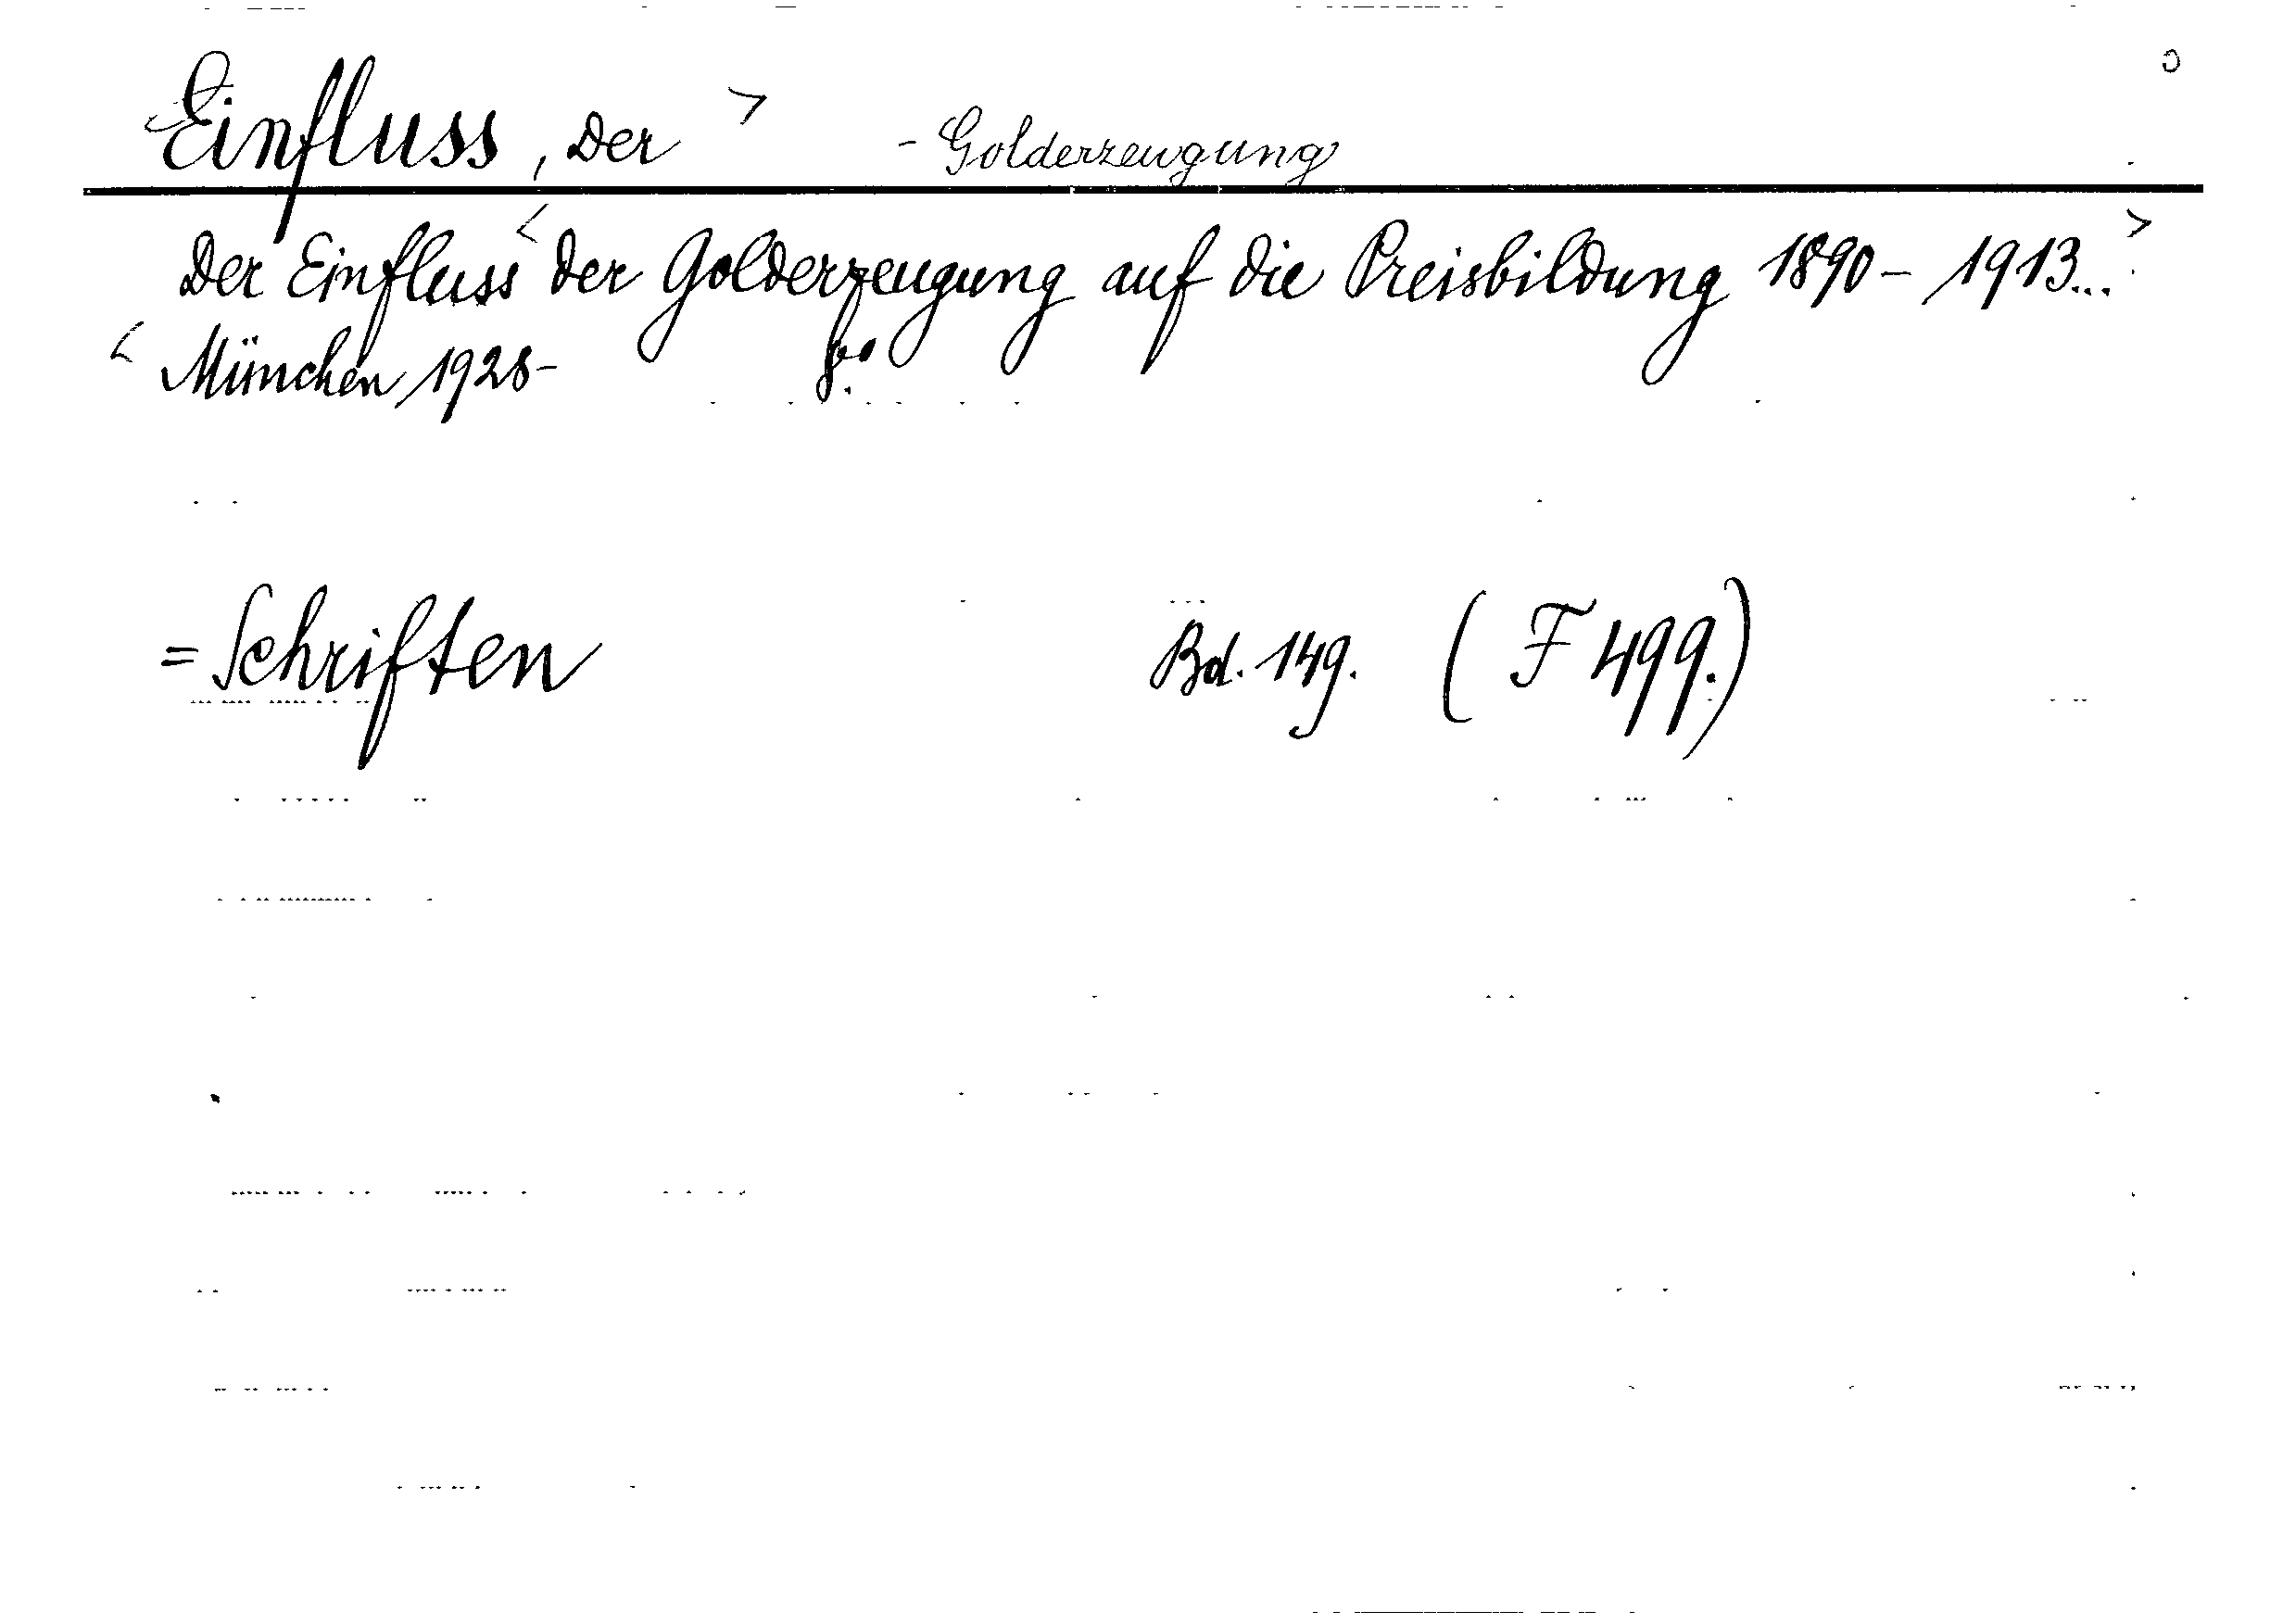 Einfluss, Der > - Golderzeugung
Der Einfluss < der Golderzeugung auf die Preisbildung 1890-1913... >
< München 1928- 8.°
= Schriften Bd. 149. (F 499.)